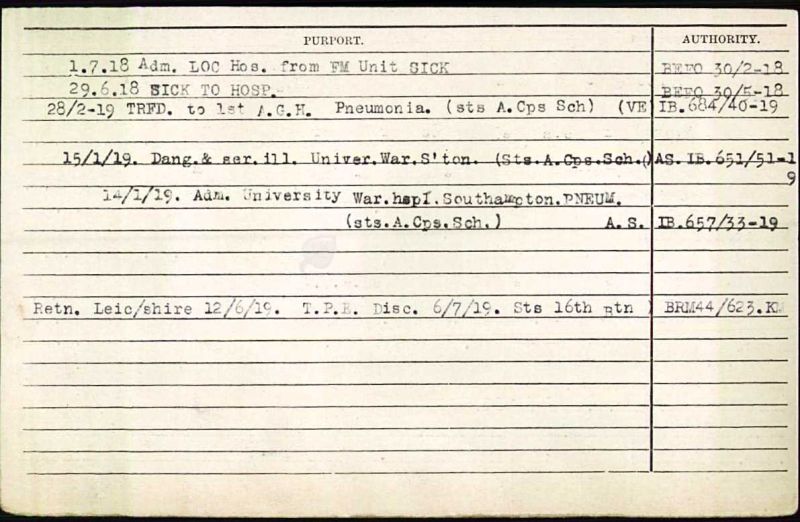 PURPORT. AUTHORITY.
1.7.18 Adm. LOC Hos. from FM Unit SICK BEFO 30/2-18
29.6.18 SICK TO HOSP. BEFO 30/5-18
28/2-19 TRFD. to 1st A.G.H. Pneumonia. (sts A.Cps Sch) (VE IB.684/40-19
15/1/19. Dang.& ser.ill. Univer.War.S'ton. (Sts.A.Cps.Sch.() AS.IB.651/51-1
9
14/1/19. Adm. University War.hspl.Southampton.PNEUM.
(sts.A.Cps.Sch.) A.S. IB.657/33-19
Retn. Leic/shire 12/6/19. T.P.E. Disc. 6/7/19. Sts 16th Btn ) BRM44/623.KM